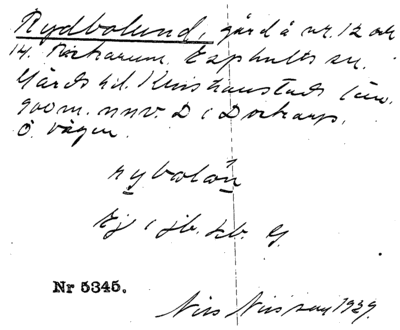 Rydbolund, gård å nr. 12 och
14. Rickarum. Esphults sn.
Gärds hd. Kristianstads län.
900 m. nnv. D i Dockarp.
Ö. vägen.
rybolún
Ej i jb. kb. G.
Nr 5345.
Nils Nilsson 1929.